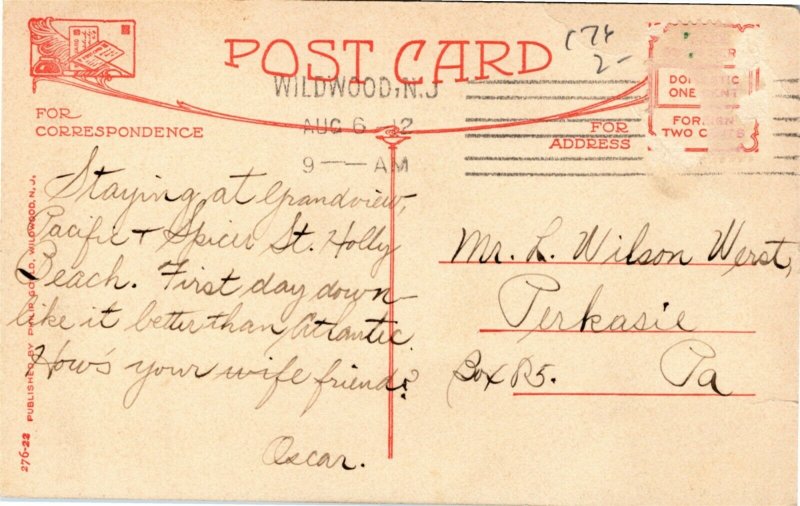 POST CARD
174
2-
WILDWOOD, N.J
AUG 6 12
9 — AM
FOR
CORRESPONDENCE
FOR
ADDRESS
DOMESTIC
ONE CENT
FOREIGN
TWO CENTS
Staying at Grandview,
Pacific + Spicer St. Holly
Beach. First day down
like it better than Atlantic.
How's your wife friend?
Oscar.
Mr. L. Wilson Werst,
Perkasie
Box R5. Pa
276-22 PUBLISHED BY PHILIP GOULD, WILDWOOD, N. J.